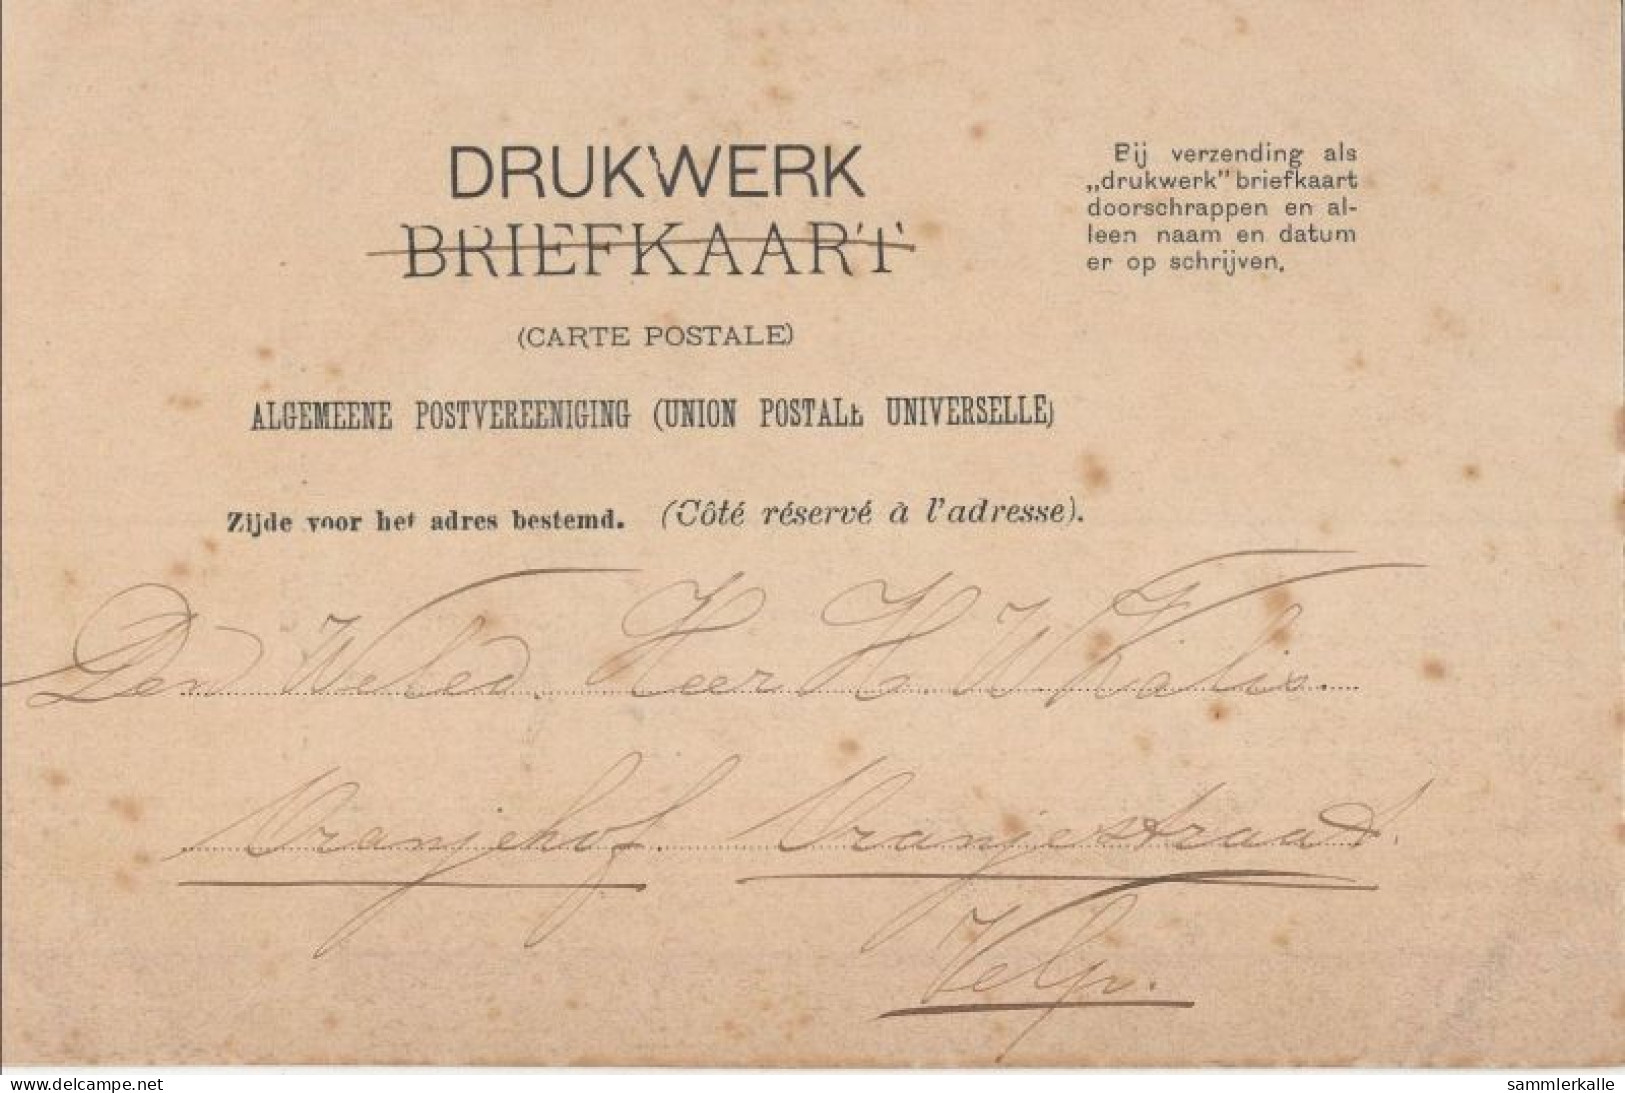 DRUKWERK
BRIEFKAART
(CARTE POSTALE)
ALGEMEENE POSTVEREENIGING (UNION POSTALE UNIVERSELLE)
Zijde voor het adres bestemd. (Côté réservé à l'adresse).
Bij verzending als
„drukwerk" briefkaart
doorschrappen en al-
leen naam en datum
er op schrijven.
Den Weled. Heer H. W.
Oranjehof. Oranjestraat.
Velp.
www.delcampe.net
sammlerkalle